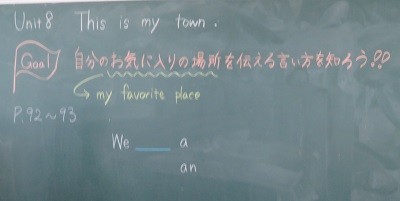 Unit 8 This is my town.
Goal 自分のお気に入りの場所を伝える言い方を知ろう!!
my favorite place
P.92~93
We ___ a
an